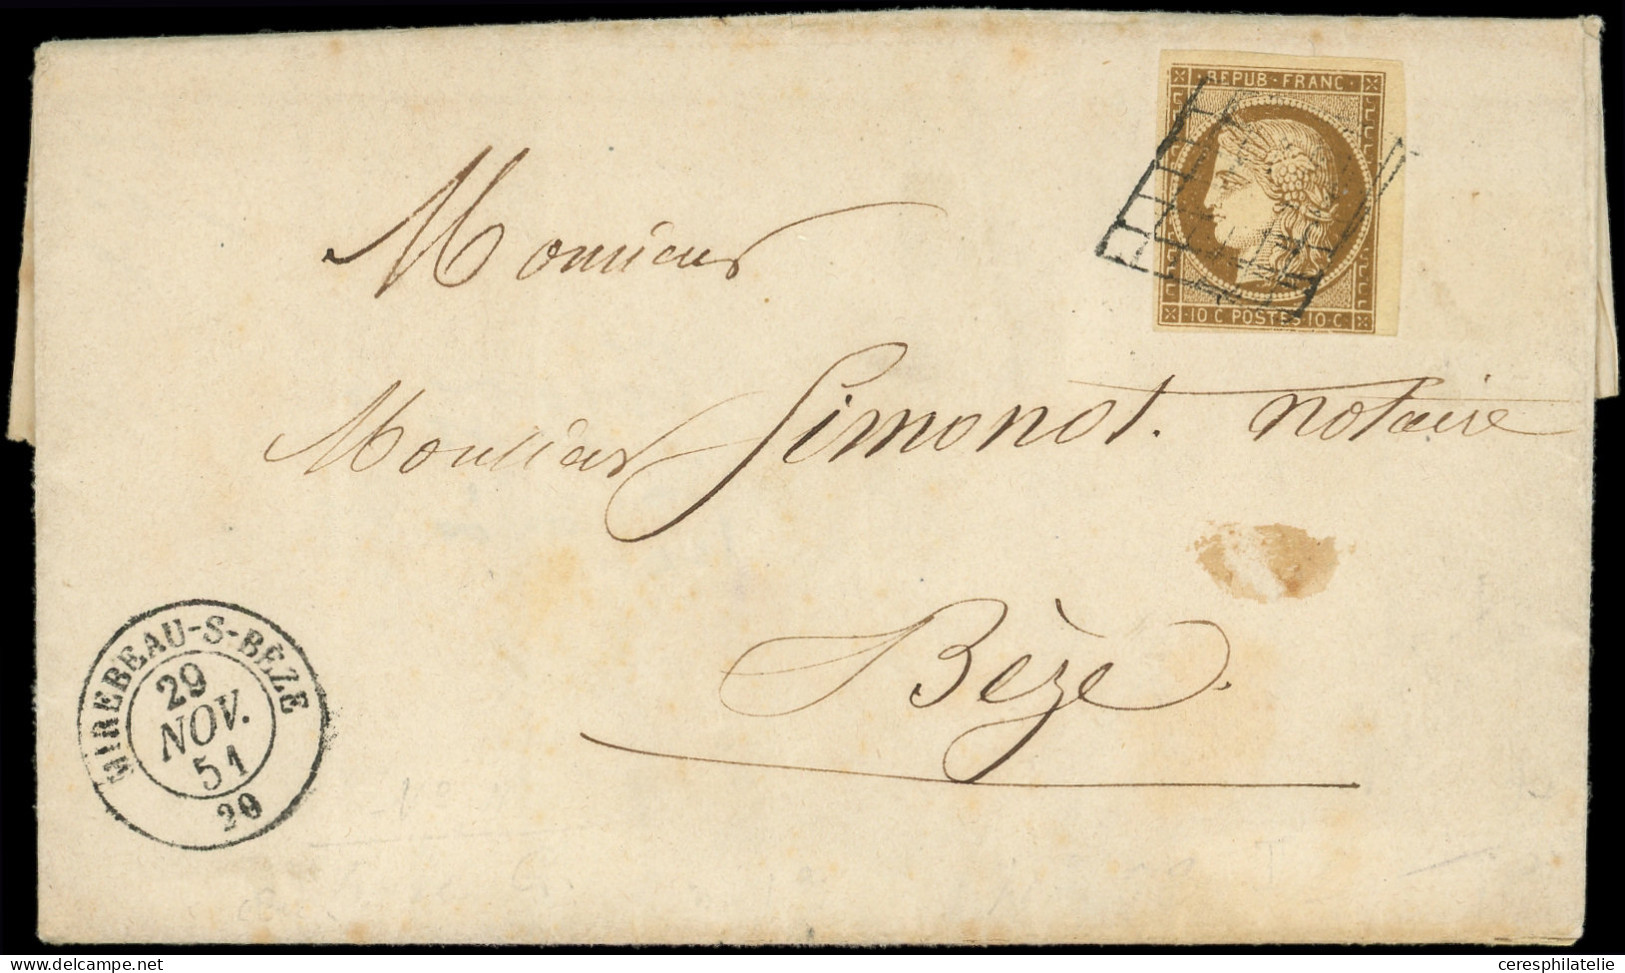 REPUB · FRANC ·
· 10 C POSTES · 10 · C ·
Monsieur
Monsieur Simonot. notaire
Bèze.
MIREBEAU-S-BÈZE
29
NOV.
51
20
www.delcampe.net
ceresphilatelie